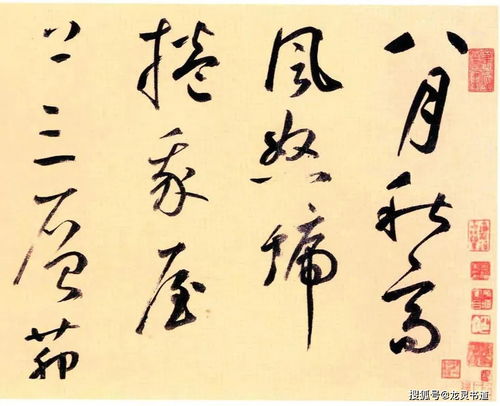 八月秋高
風怒號
捲我屋
上三層茆
搜狐号@龙灵书道